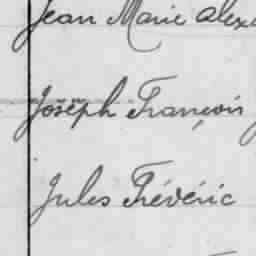 Jean Marie Alex
Joseph François
Jules Frévéric